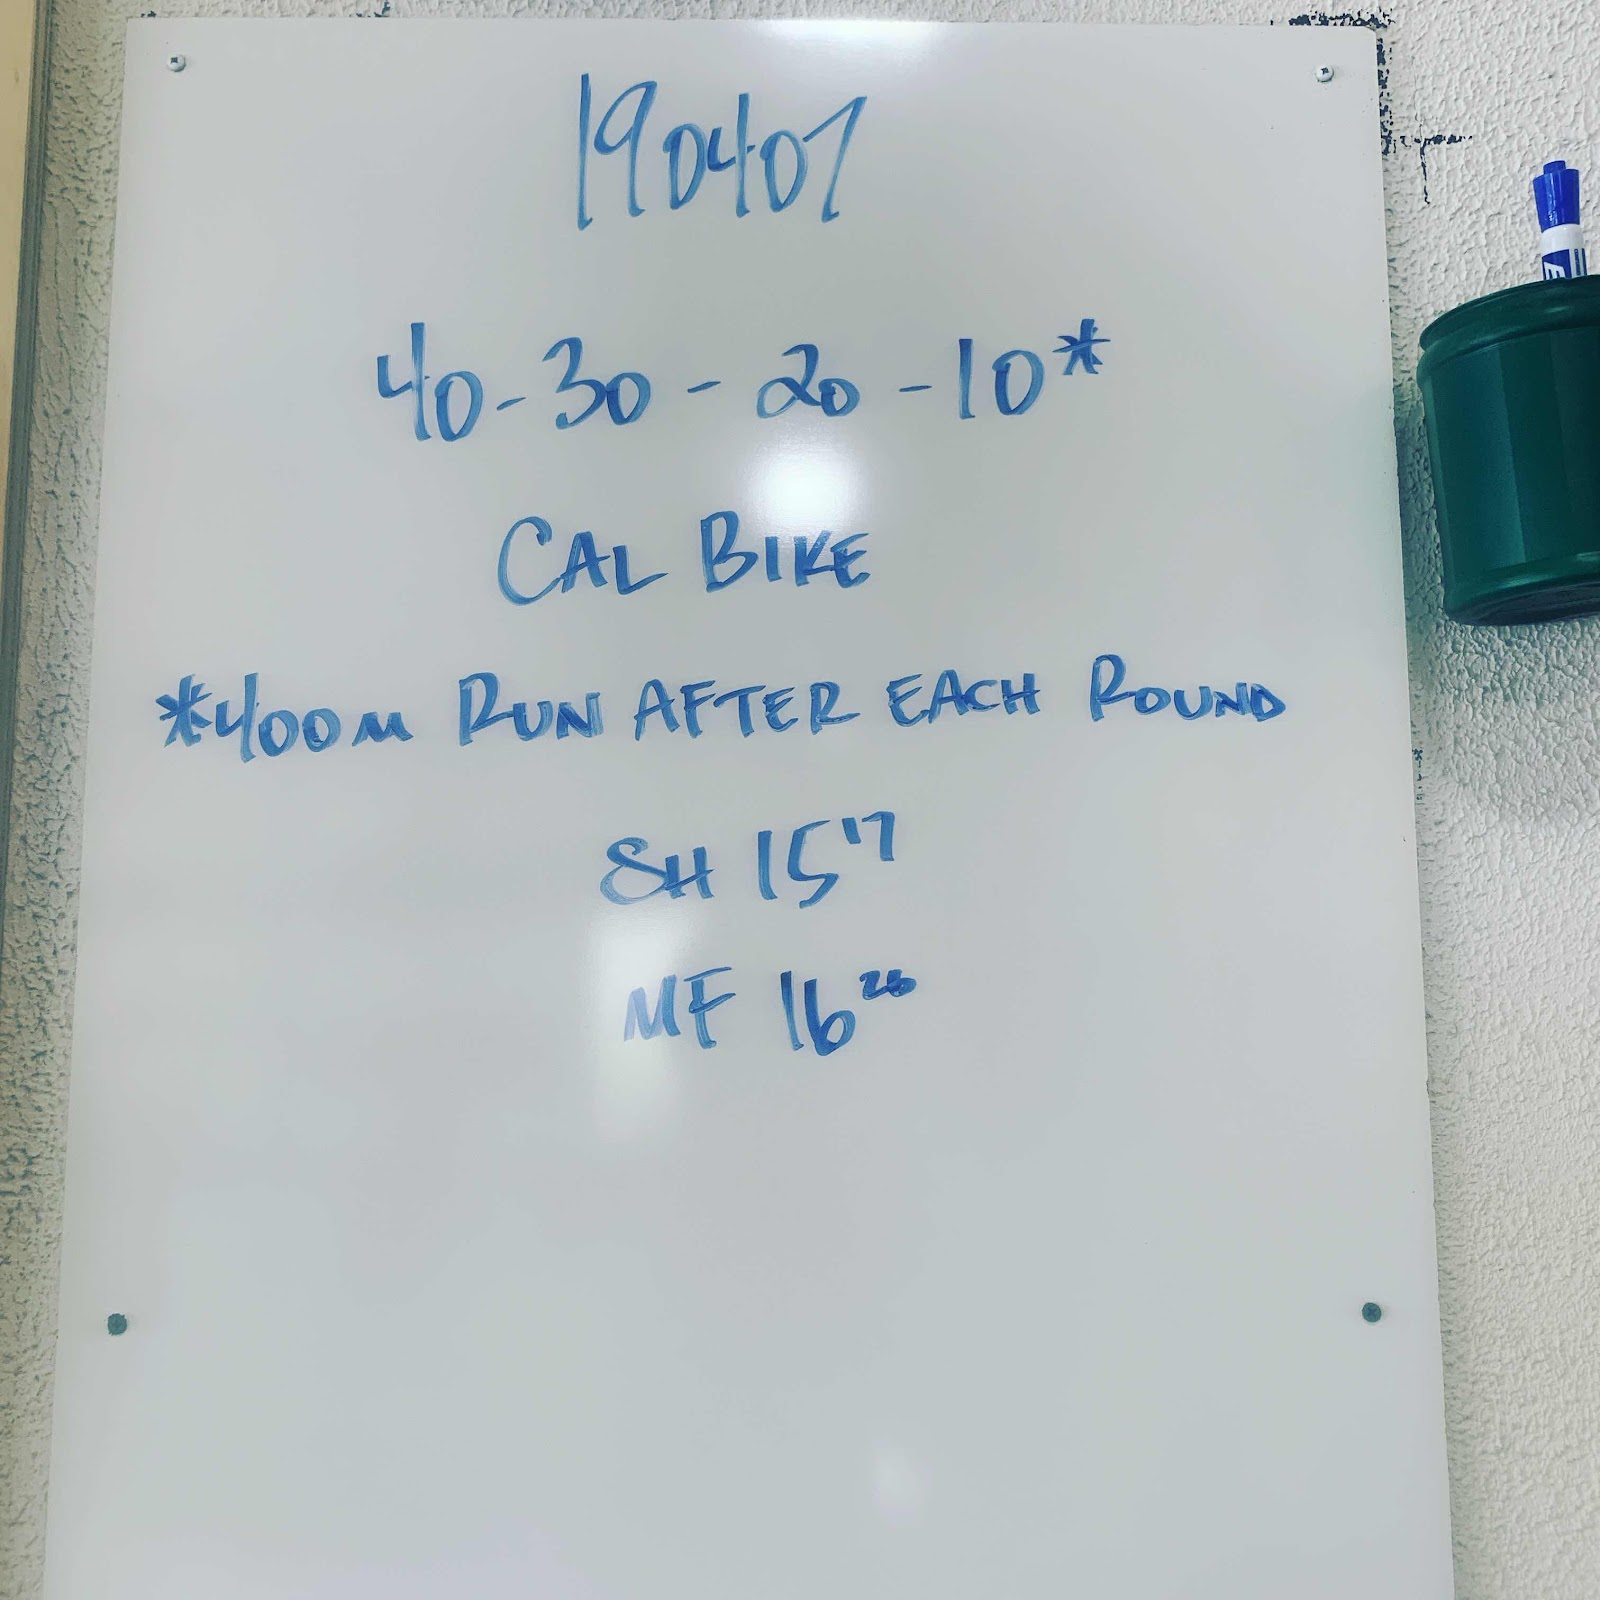 190407
40-30-20-10*
CAL BIKE
*400M RUN AFTER EACH ROUND
SH 15 17
MF 16 26
E